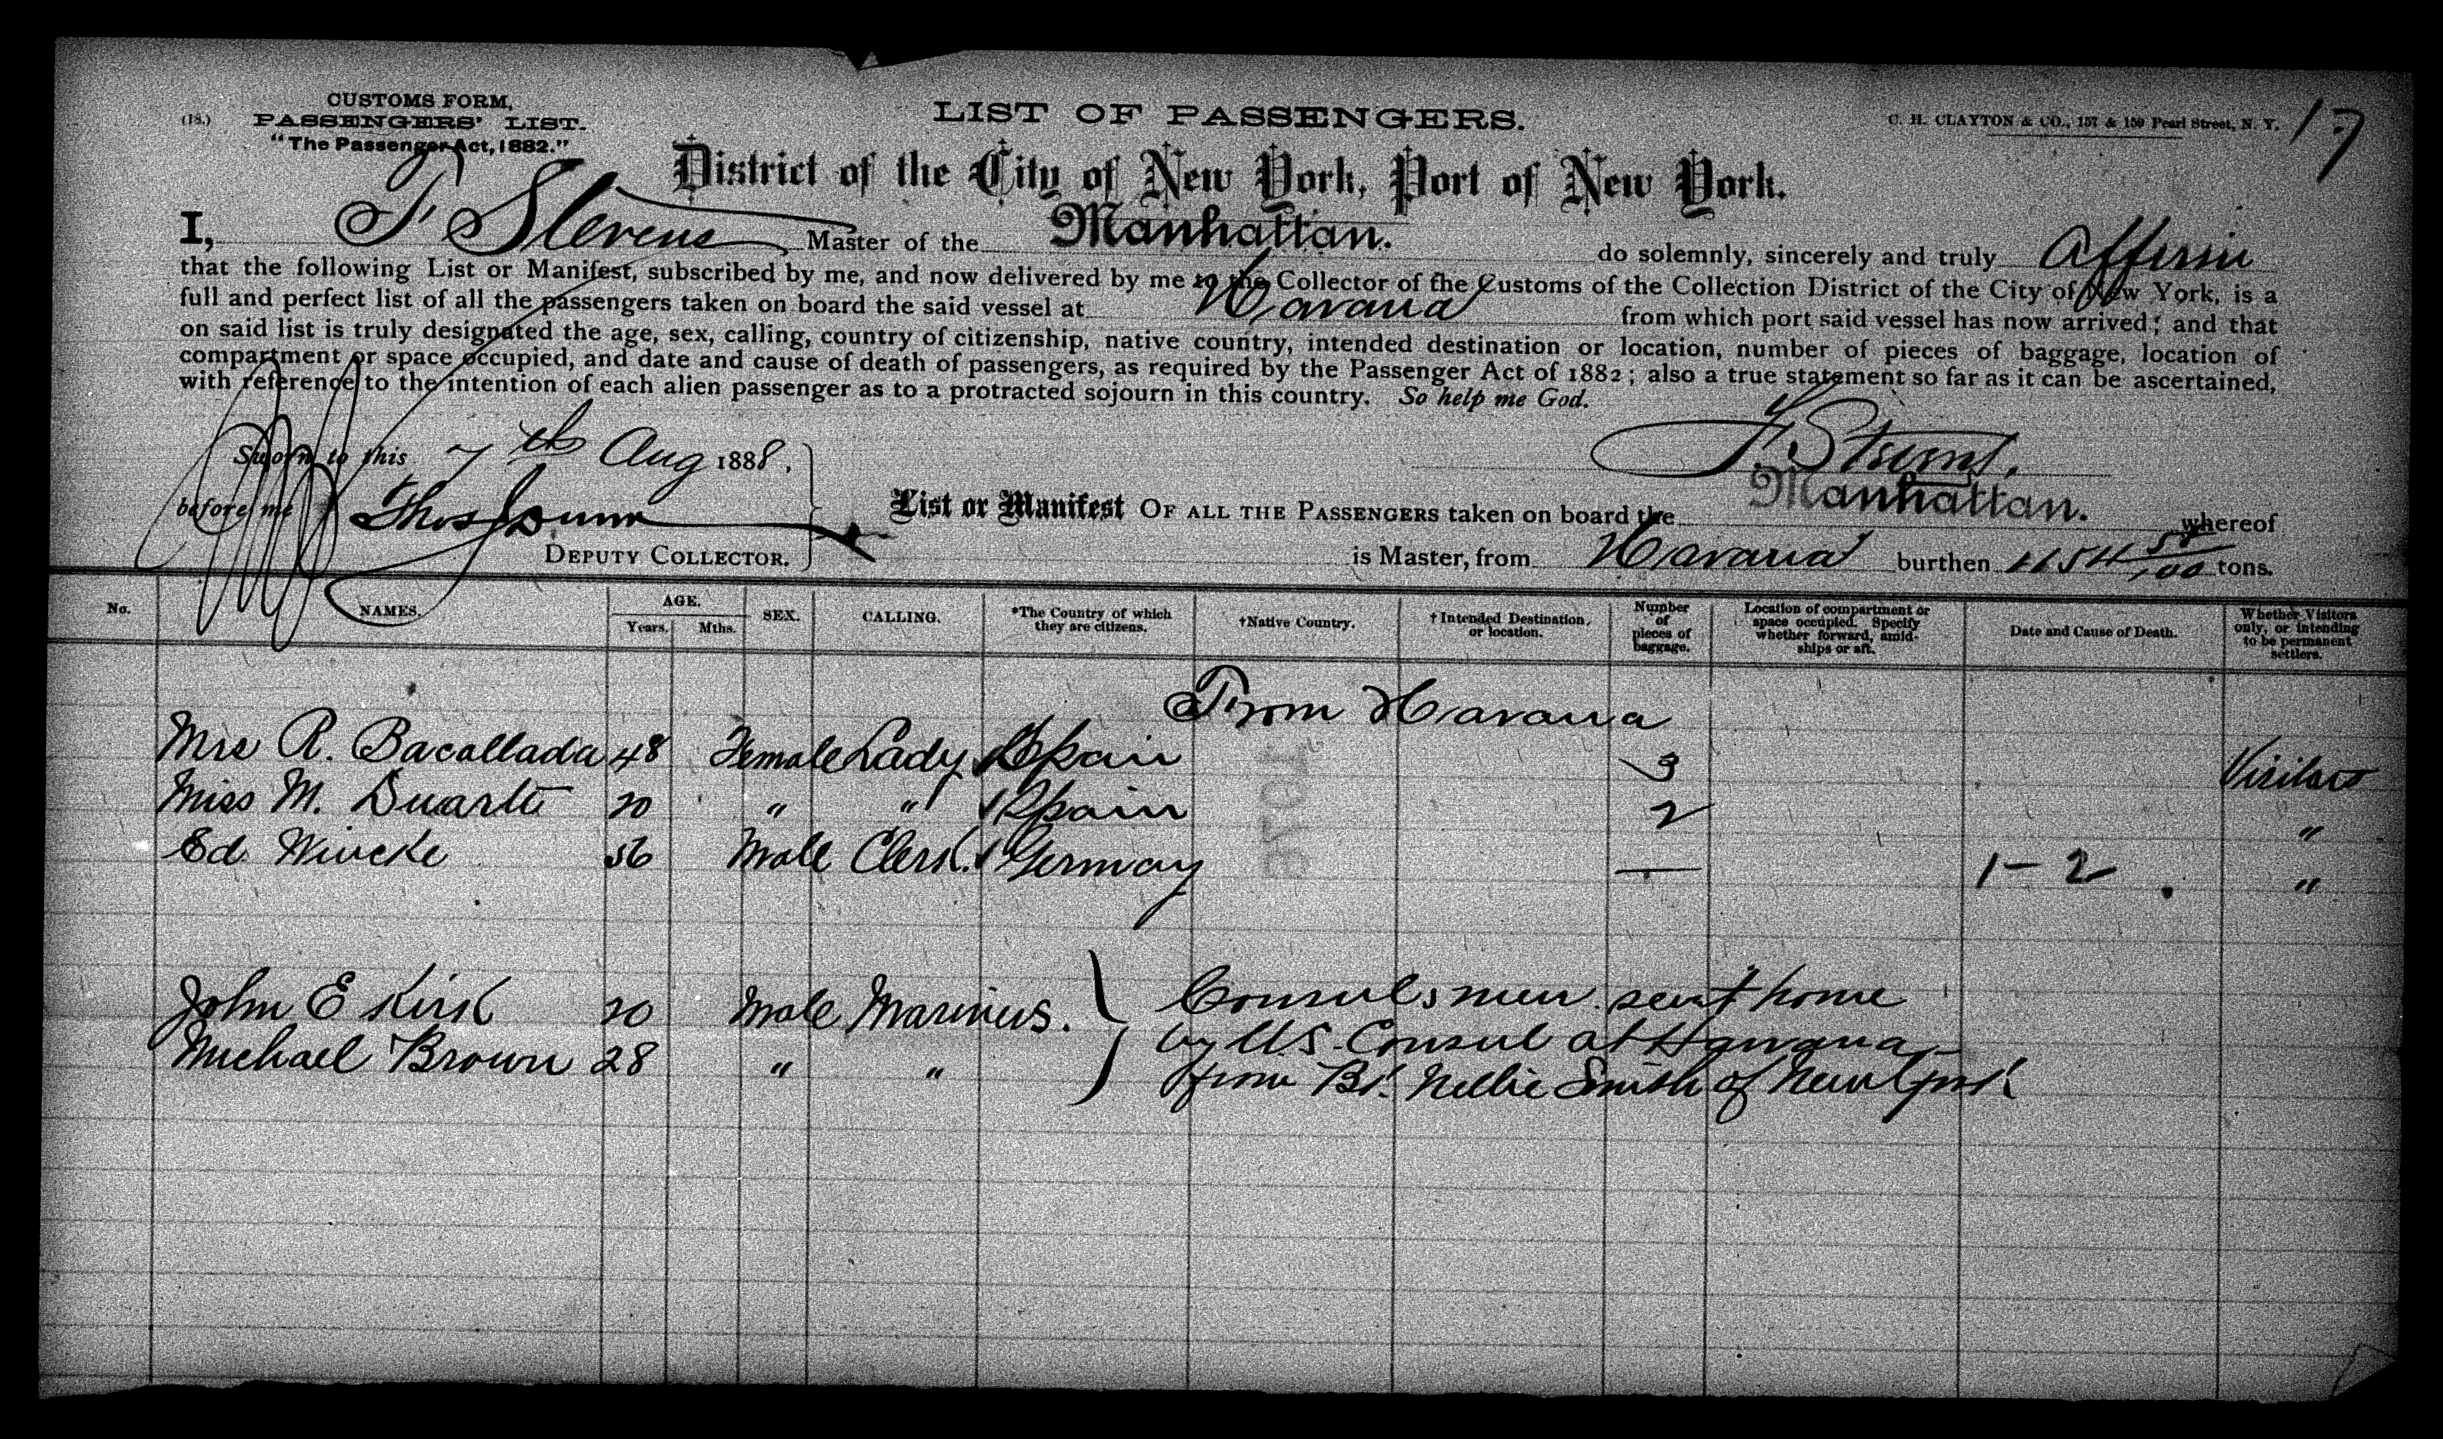 CUSTOMS FORM,
(18.) PASSENGERS' LIST.
"The Passenger Act, 1882."
LIST OF PASSENGERS.
C. H. CLAYTON & CO., 157 & 159 Pearl Street, N. Y.
17
District of the City of New York, Port of New York.
I, F Stevens Master of the Manhattan. do solemnly, sincerely and truly affirm
that the following List or Manifest, subscribed by me, and now delivered by me to the Collector of the Customs of the Collection District of the City of New York, is a
full and perfect list of all the passengers taken on board the said vessel at Havana from which port said vessel has now arrived; and that
on said list is truly designated the age, sex, calling, country of citizenship, native country, intended destination or location, number of pieces of baggage, location of
compartment or space occupied, and date and cause of death of passengers, as required by the Passenger Act of 1882; also a true statement so far as it can be ascertained,
with reference to the intention of each alien passenger as to a protracted sojourn in this country. So help me God.
Sworn to this 7th Aug 1888,
F Stevens.
before me Thos Dunn
DEPUTY COLLECTOR.
List or Manifest OF ALL THE PASSENGERS taken on board the Manhattan. whereof
is Master, from Havana burthen 1154 58/100 tons.
No. NAMES. AGE. Years. Mths. SEX. CALLING. *The Country of which they are citizens. †Native Country. †Intended Destination, or location. Number of pieces of baggage. Location of compartment or space occupied. Specify whether forward, amidships or aft. Date and Cause of Death. Whether Visitors only, or intending to be permanent settlers.
From Havana
Mrs R. Bacallada 48 Female Lady Spain 3 Visitors
Miss M. Duarte 20 " " Spain 2 "
Ed. Wincke 56 Male Clerk. Germay — 1-2 "
John E Kirk 20 Male Mariners. Consuls men sent home
by U.S. Consul at Havana
Michael Brown 28 " " from Bk. Nellie Smith of New York